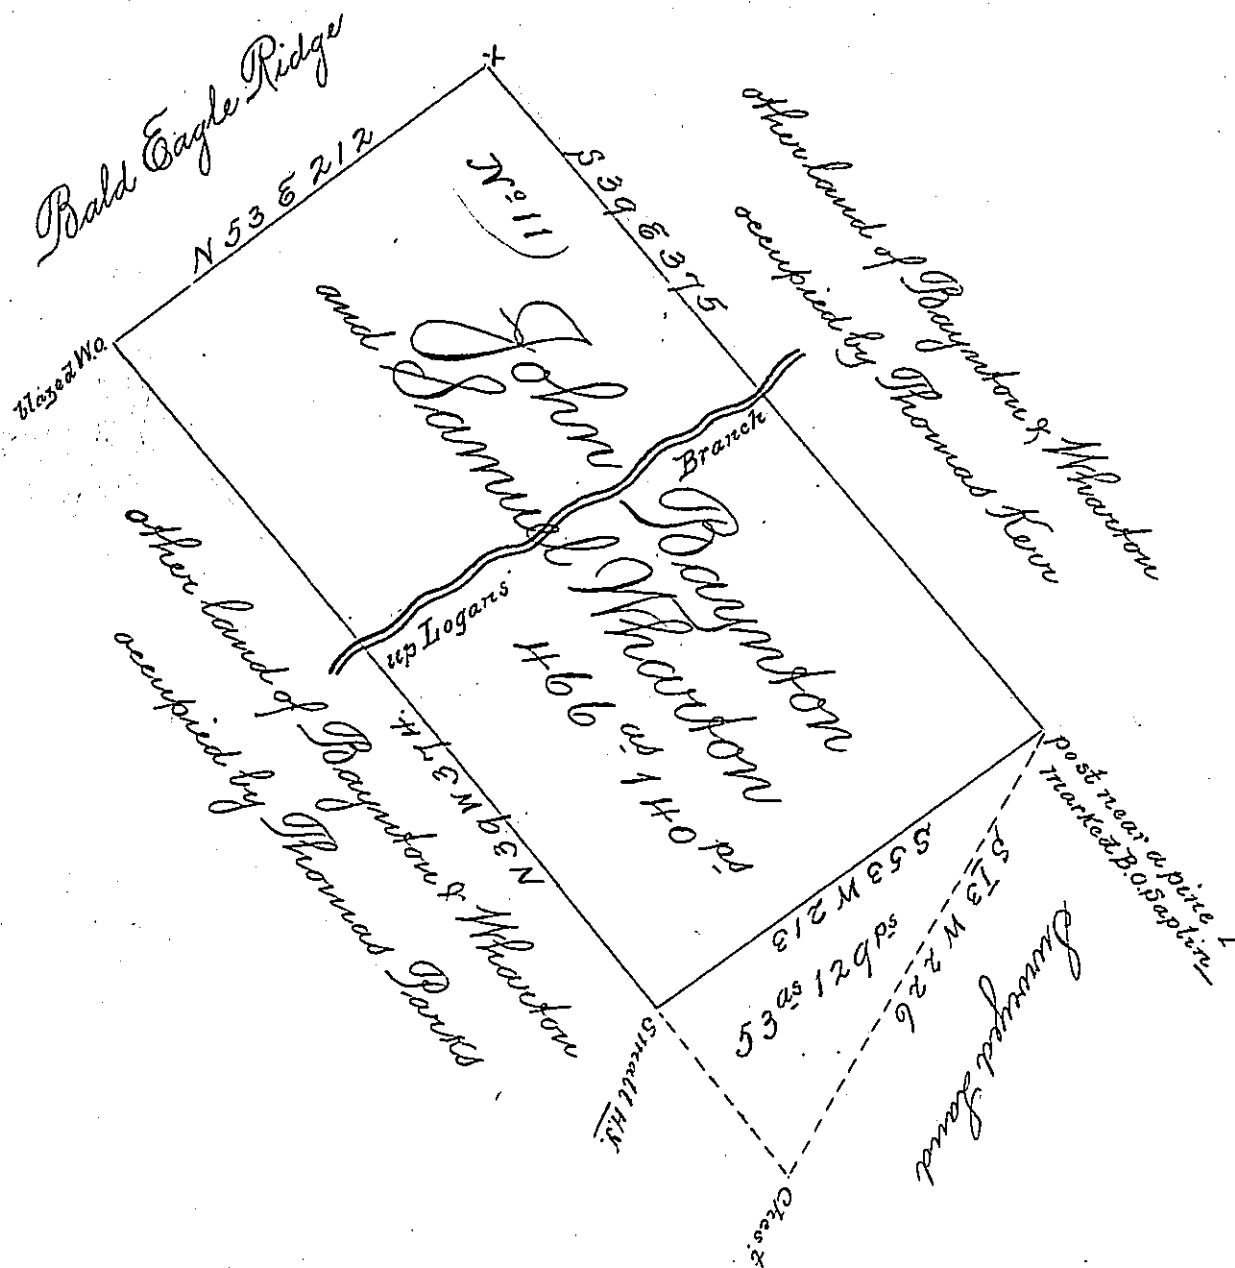 Bald Eagle Ridge
N 53 E 212
X
S 39 E 375
other land of Baynton & Wharton
occupied by Thomas Kerr
No 11
John Baynton
and Samuel Wharton
466 as 140 ps
up Logans Branch
blazed W.O.
other land of Baynton & Wharton
occupied by Thomas Parks
N 39 W 374.
S 53 W 213
53 as 126 ps
S 13 W 226
post near a pine &
marked B.O. Saplin
Surveyed Land
Small H.Y.
Ches.t